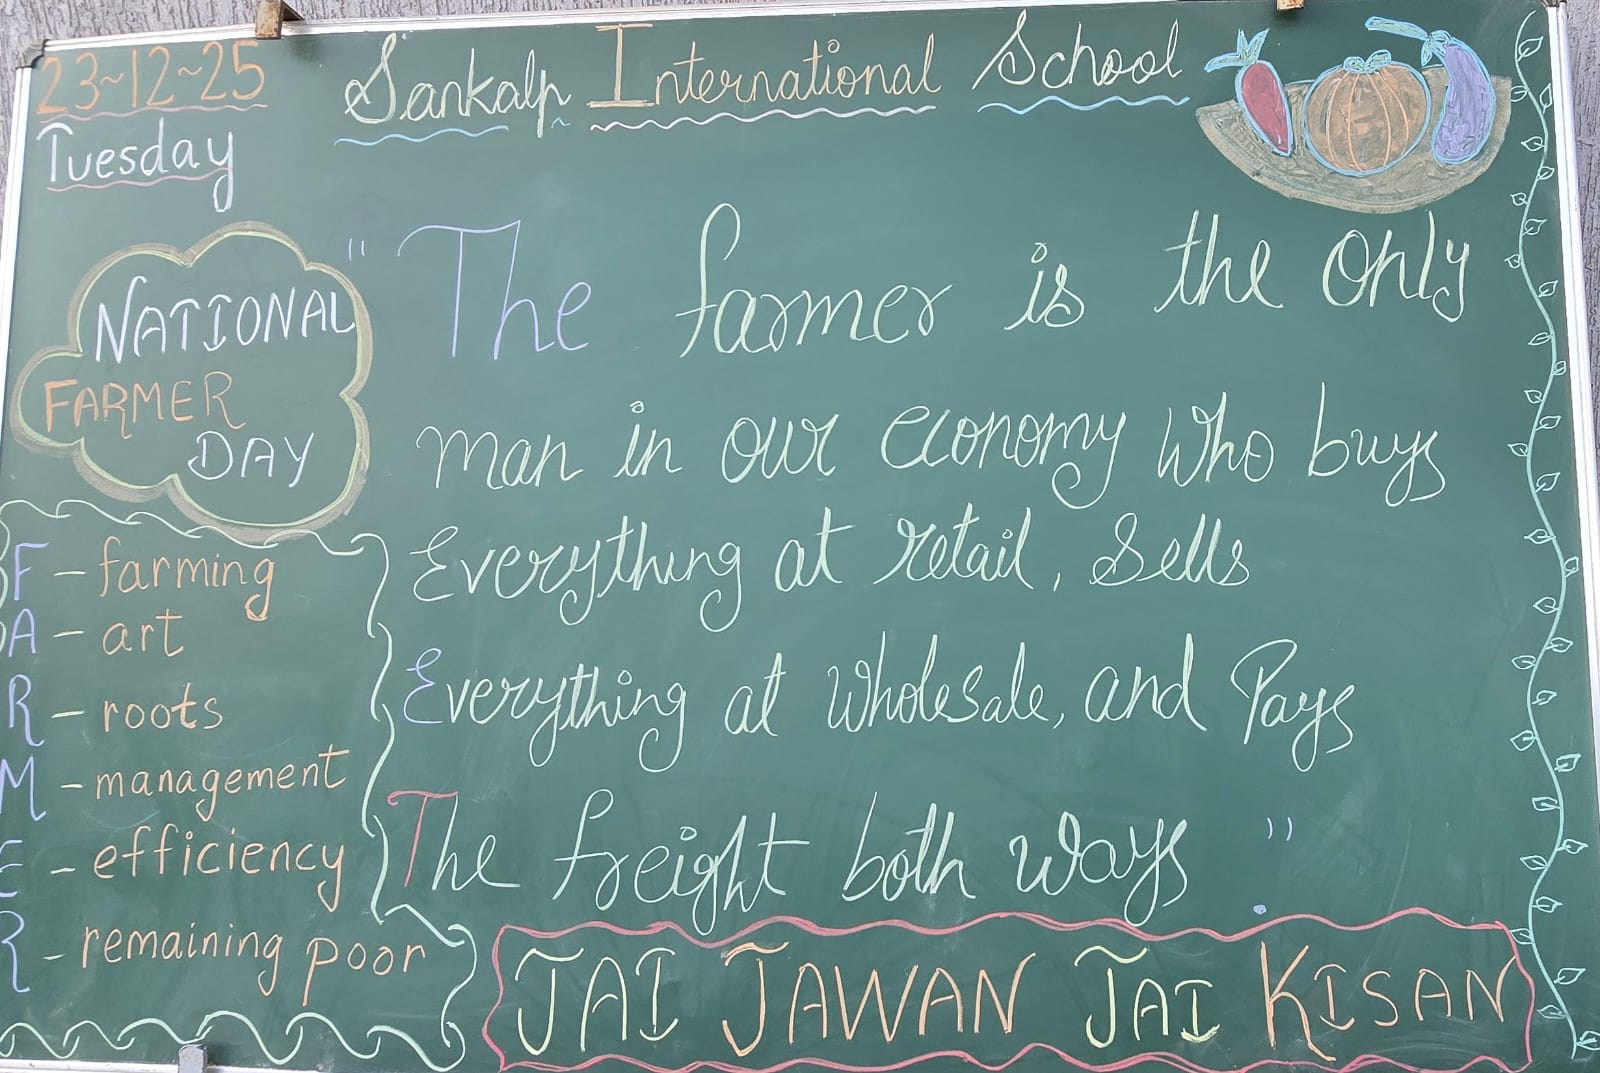 23~12~25
Tuesday
Sankalp International School
NATIONAL
FARMER
DAY
F - farming
A - art
R - roots
M - management
E - efficiency
R - remaining poor
" The farmer is the only
man in our economy who buys
Everything at retail, Sells
Everything at wholesale, and Pays
The freight both ways. "
JAI JAWAN JAI KISAN